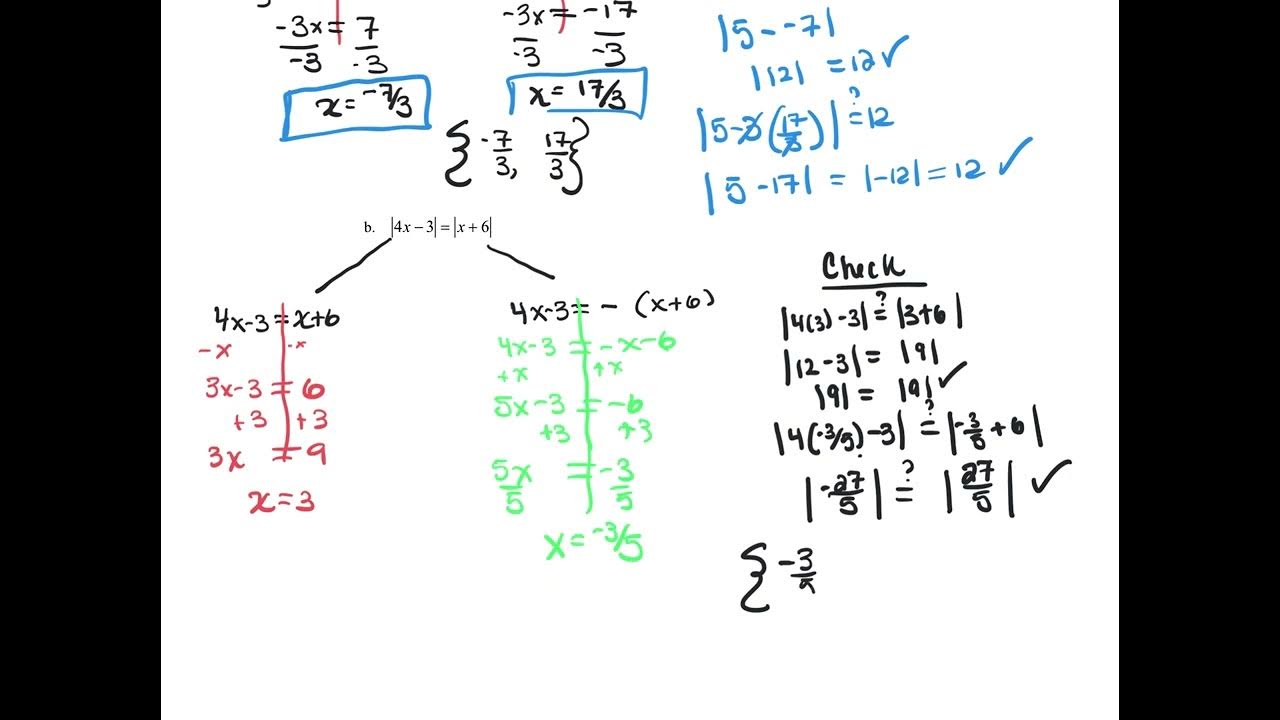 -3x = 7
-3 -3
x = -7/3
-3x = -17
-3 -3
x = 17/3
{-7/3, 17/3}
|5 - -7|
|12| = 12 ✓
|5-3(17/3)| ?= 12
|5-17| = |-12| = 12 ✓
b. |4x-3| = |x+6|
4x-3 = x+6
-x -x
3x-3 = 6
+3 +3
3x = 9
x = 3
4x-3 = - (x+6)
4x-3 = -x-6
+x +x
5x-3 = -6
+3 +3
5x = -3
5 5
x = -3/5
Check
|4(3)-3| ?= |3+6|
|12-3| = |9|
|9| = |9| ✓
|4(-3/5)-3| ?= |-3/5+6|
|-27/5| ?= |27/5| ✓
{-3/5